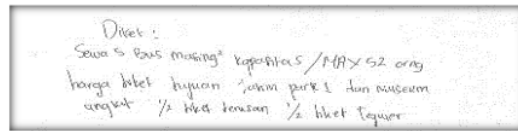 Diket :
Sewa 5 Bus masing² kapasitas / MAX 52 orng
harga tiket tujuan jatim park 1 dan museum
angkut ½ tiket terusan ½ tiket reguler